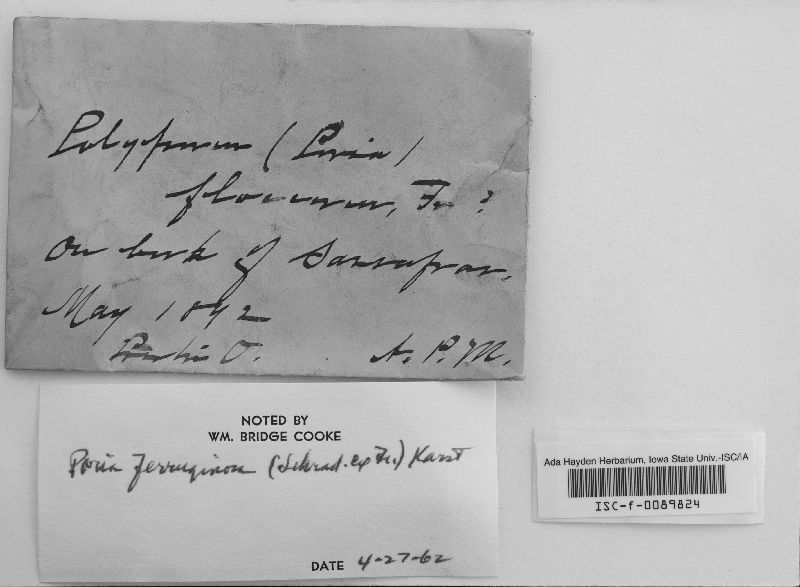 Polyporus (Poria)
Fr ?
On bark of Sassafras.
May 1892
O. A. P. M.
NOTED BY
WM. BRIDGE COOKE
Poria ferruginosa (Schrad. ex Fr.) Karst
DATE 4-27-62
Ada Hayden Herbarium, Iowa State Univ.-ISC/IA
ISC-f-0089824